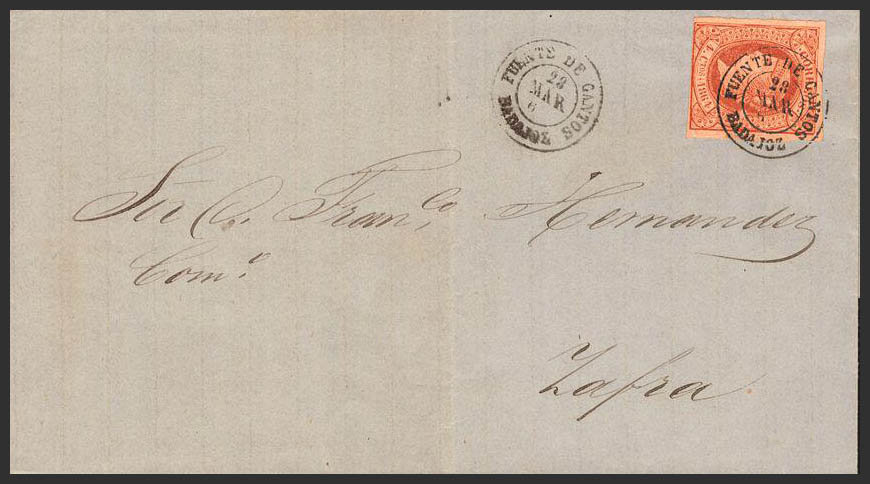 FUENTE DE CANTOS
28
MAR
6
BADAJOZ
FUENTE DE CANTOS
28
MAR
BADAJOZ
4 CUARTOS
Sor Dn. Franco. Hernandez
Como.
Zafra